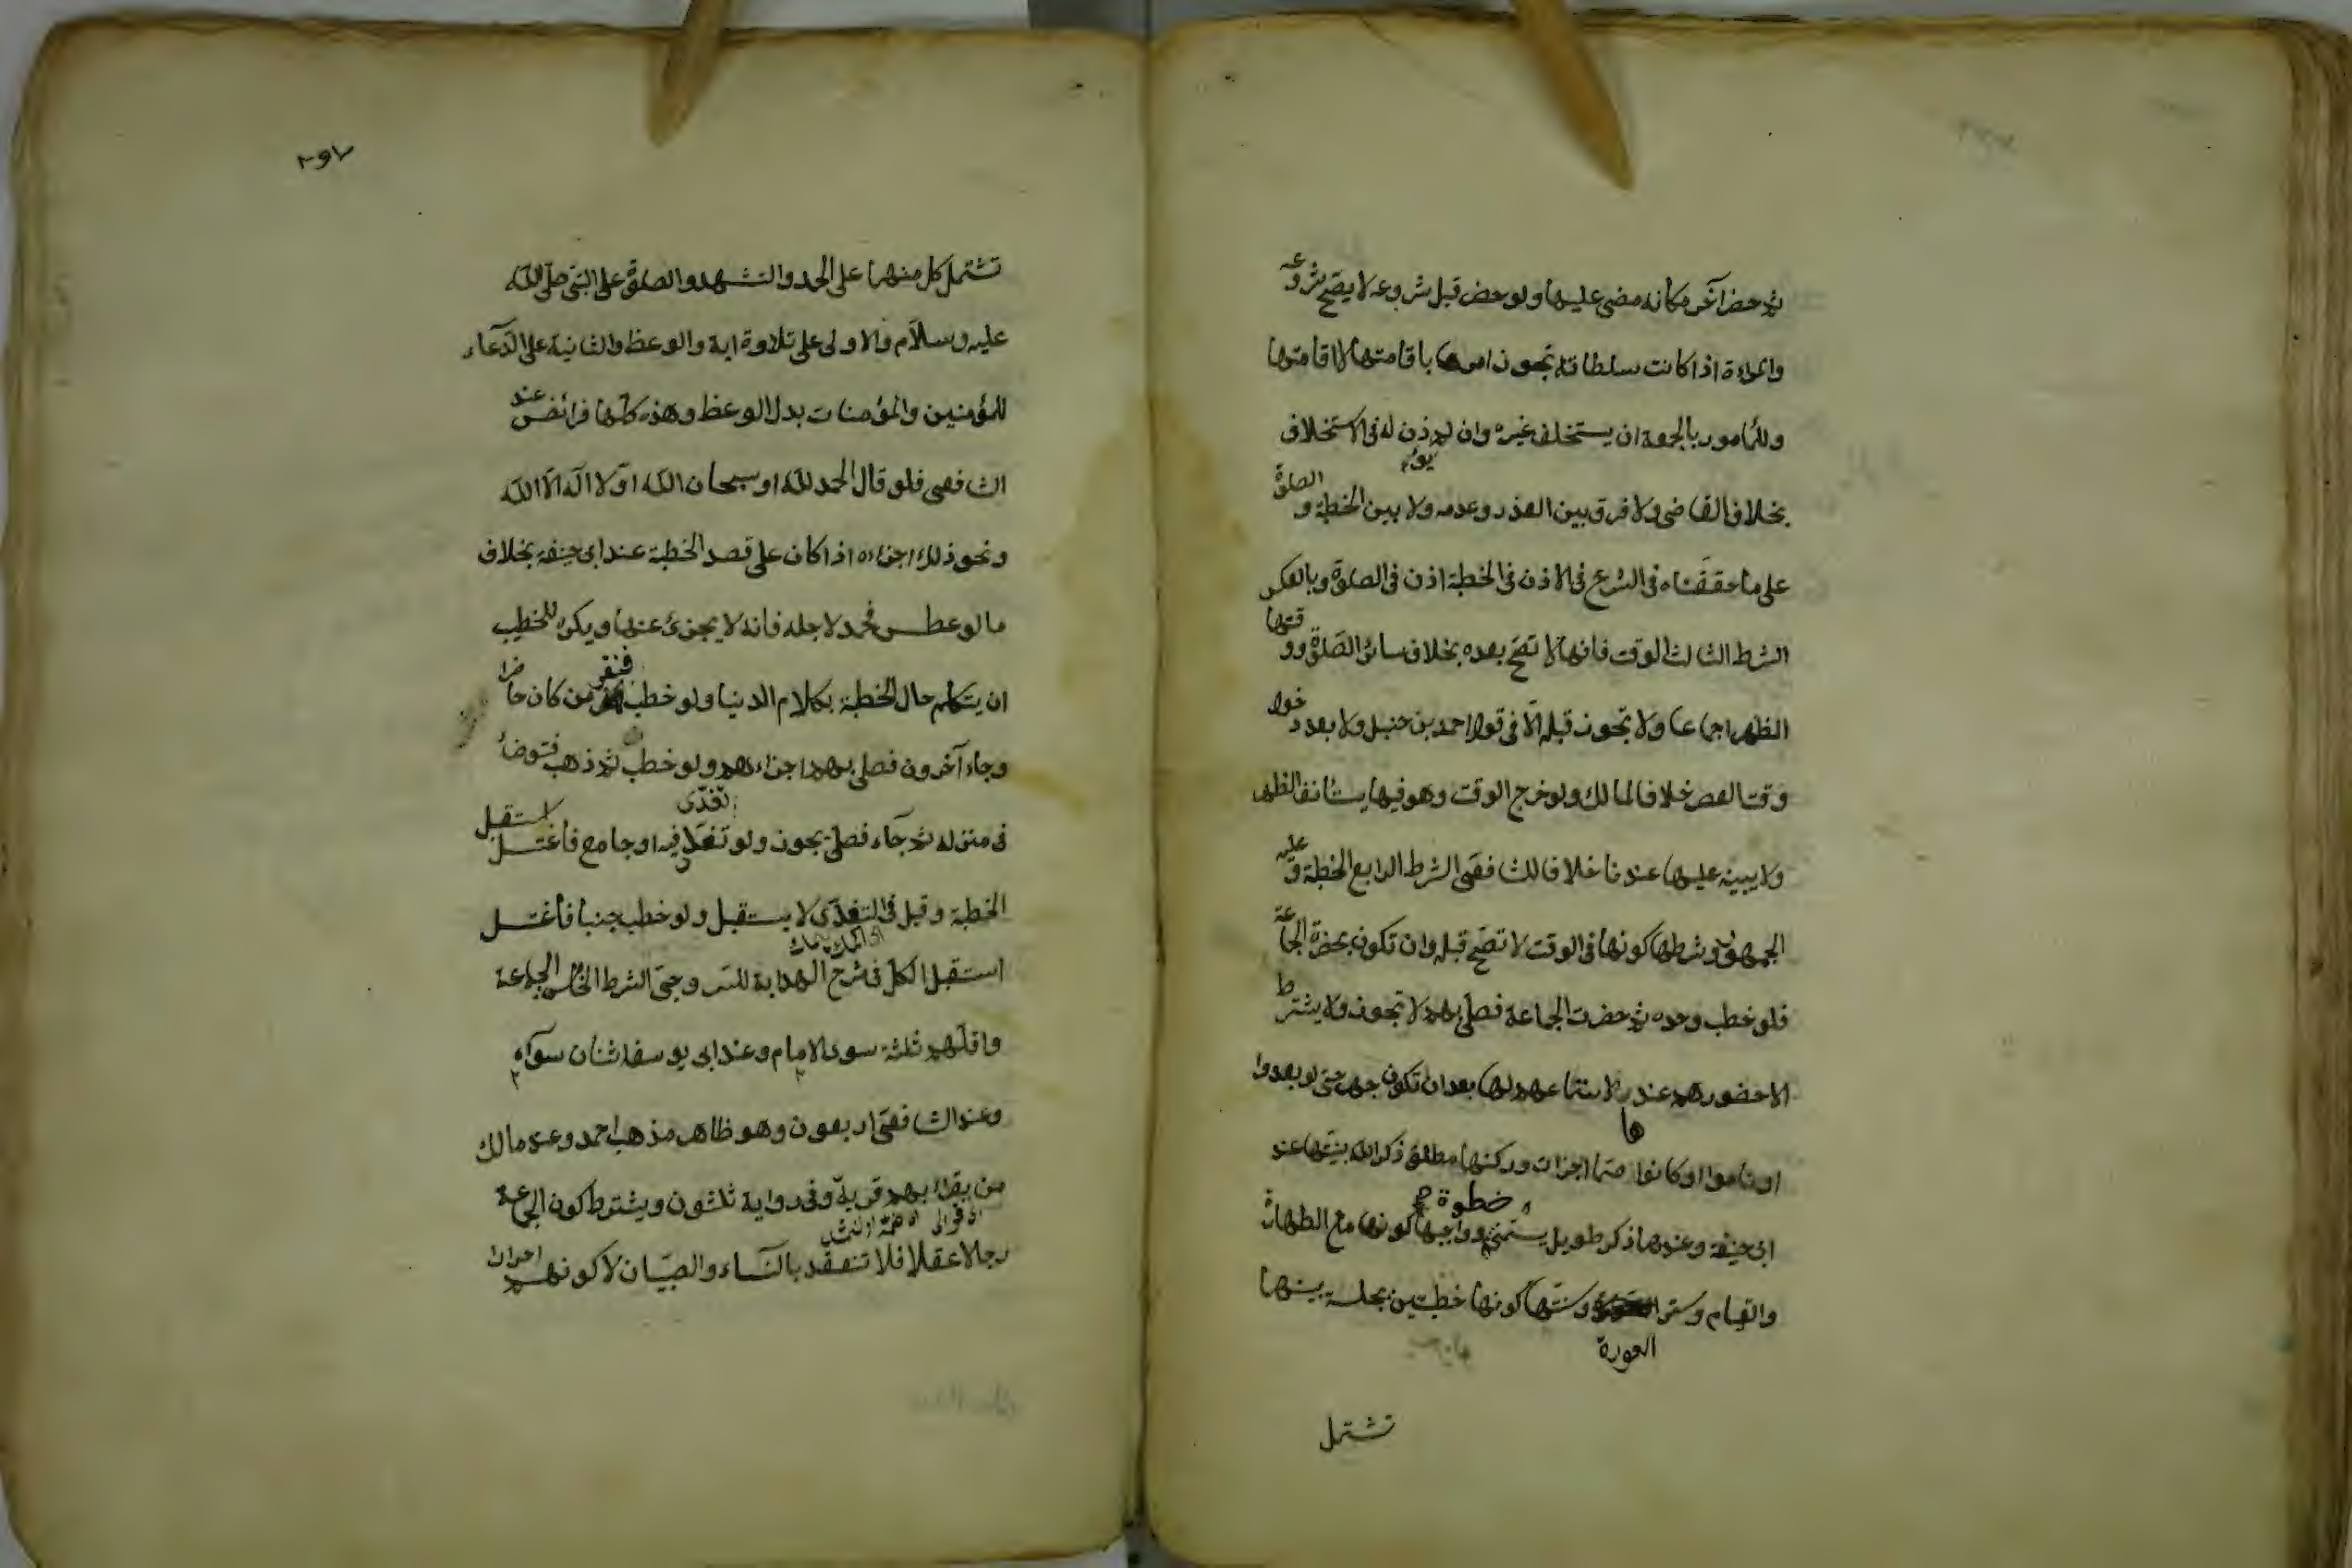 ثم حضر آخر مكانه مضى عليها ولو حضر قبل شروعه لا يصح شروعه
والمراءة اذا كانت سلطانة تجوز امرها باقامتها لا اقامتها
وللمأمور بالجمعة ان يستخلف غيره وان لم يؤذن له فى الاستخلاف
بخلاف القاضى ولا فرق بين العذر وعدمه ولا بين الخطبة والصلوة
على ما حققناه فى الشرح فى الاذن فى الخطبة اذن فى الصلوة وبالعكس
الشرط الثالث الوقت فانها لا تصح بعده بخلاف سائر الصلوة ووقتها
الظهر اجماعا ولا تجوز قبله الا فى قول احمد بن حنبل ولا بعد دخول
وقت العصر خلافا لمالك ولو خرج الوقت وهو فيها يستأنف الظهر
ولا يبينه عليها عندنا خلافا للشافعى الشرط الرابع الخطبة وعليه
الجمهور وشرطها كونها فى الوقت لا تصح قبله وان تكون بحضرة الجماعة
فلو خطب وحده ثم حضرت الجماعة فصلى بهم لا تجوز ولا يشترط
الا حضورهم عندها لا استماعهم لها بعد ان تكون جهر حتى لو بعدوا
او ناموا او كانوا صما اجزات وركنها مطلق ذكر الله بنيتها عند
ابى حنيفة وعندهما ذكر طويل يسمى خطوة وواجبها كونها مع الطهارة
والقيام وستر العورة وسنتها كونها خطبتين بجلسة بينهما
تشتمل
٢٩٢
تشتمل كل منهما على الحمد والتشهد والصلوة على النبى صلى الله
عليه وسلام والاولى على تلاوة اية والوعظ والثانية على الدعاء
للمؤمنين والمؤمنات بدل الوعظ وهذه كلها فرائض عند
الشافعى فلو قال الحمد لله او سبحان الله او لا اله الا الله
ونحو ذلك اجزاءه اذا كان على قصد الخطبة عند ابى حنيفة بخلاف
ما لو عطس فحمد لاجله فانه لا يجزئ عنها ويكره للخطيب
ان يتكلم حال الخطبة بكلام الدنيا ولو خطب فنفر من كان حاضرا
وجاء آخرون فصلى بهم اجزاءهم ولو خطب ثم ذهب فتوضأ
فى منزله ثم جاء فصلى يجوز ولو تغدى فيه او جامع فاغتسل استقبل
الخطبة وقيل فى التغدى لا يستقبل ولو خطب جنبا فاغتسل
استقبل الكل فى شرح الهداية للسروجى الشرط الخامس الجماعة
واقلهم ثلثة سوى الامام وعند ابى يوسف اثنان سواه
وعند الشافعى اربعون وهو ظاهر مذهب احمد وعند مالك
من يقراء بهم قرية وفى رواية ثلثون ويشترط كون الجماعة
رجالا عقلا فلا تنعقد بالنساء والصبيان لا كونهم احرارا